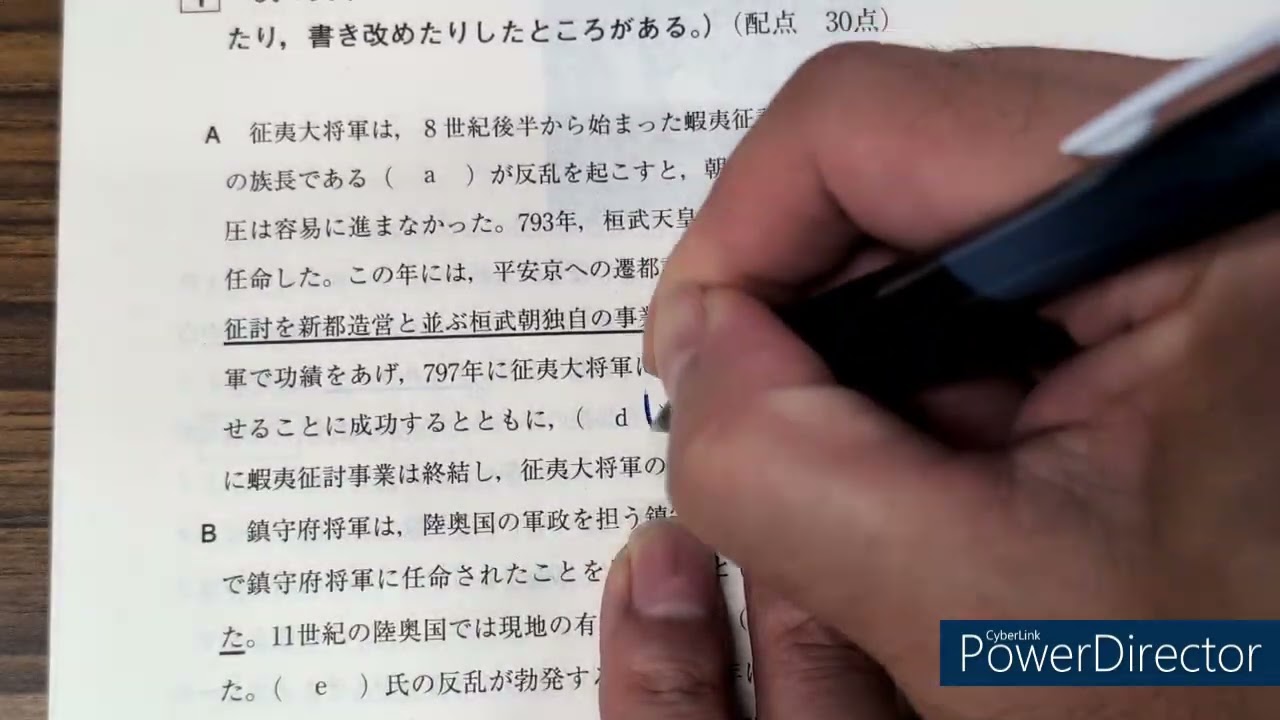 たり，書き改めたりしたところがある。）（配点　30点）
A　征夷大将軍は，８世紀後半から始まった蝦夷征
の族長である（　a　）が反乱を起こすと，朝
圧は容易に進まなかった。793年，桓武天皇
任命した。この年には，平安京への遷都
征討を新都造営と並ぶ桓武朝独自の事業
軍で功績をあげ，797年に征夷大将軍に
せることに成功するとともに，（　d
に蝦夷征討事業は終結し，征夷大将軍の
B　鎮守府将軍は，陸奥国の軍政を担う鎮守
で鎮守府将軍に任命されたことを　と
た。11世紀の陸奥国では現地の有　（
た。（　e　）氏の反乱が勃発す
CyberLink
PowerDirector